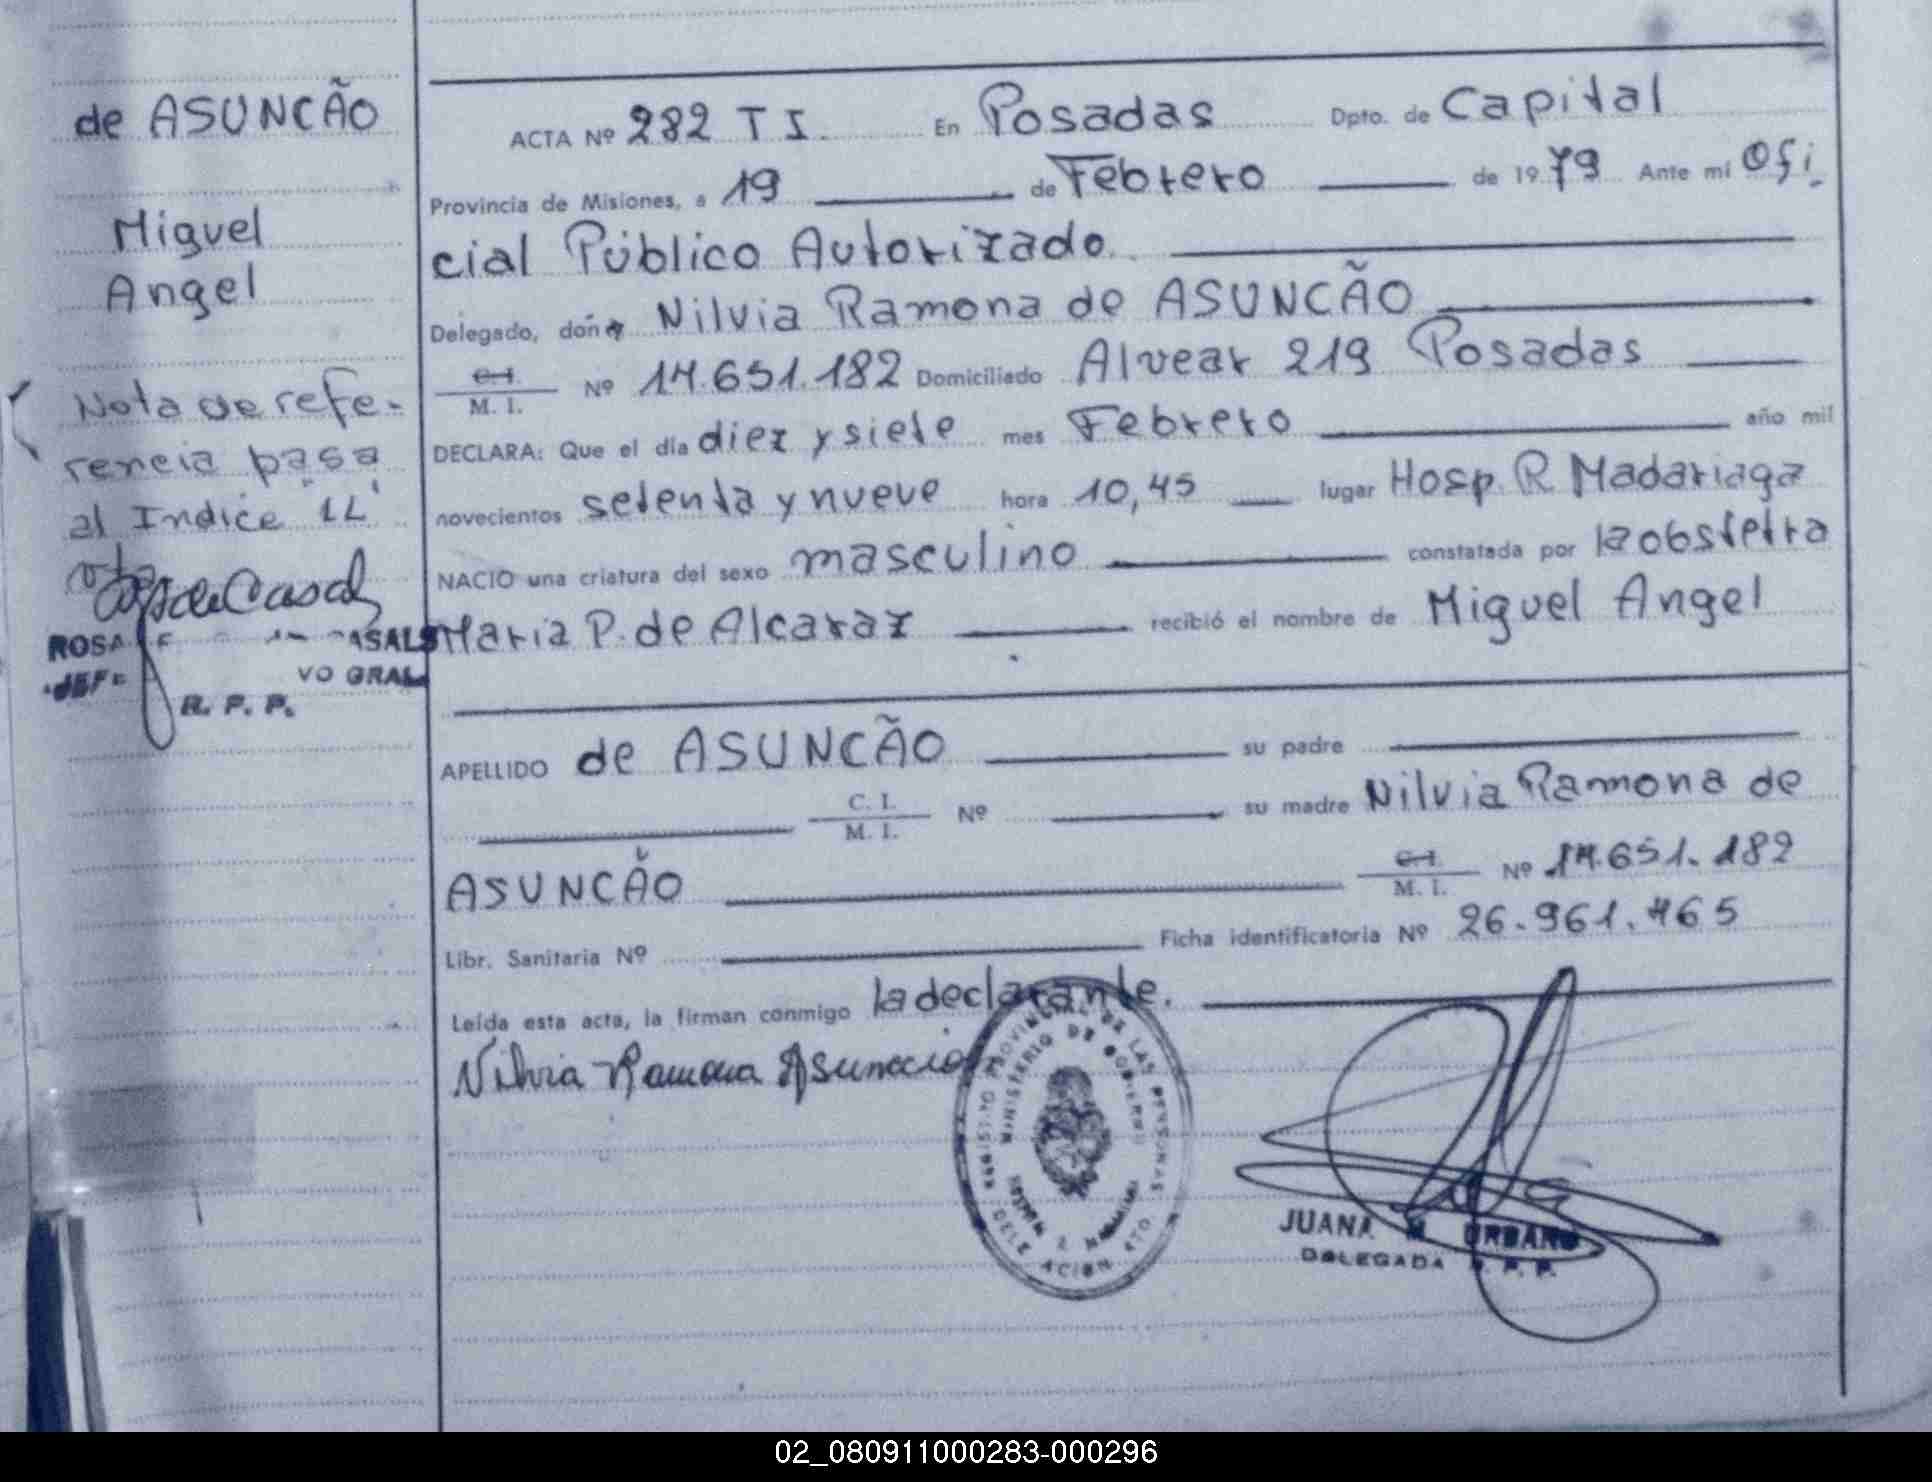 de ASUNCÃO
Miguel
Angel
Nota de refe-
rencia pasa
al Indice "LL"
ROSA
JEFE VO GRAL
R. P. P.
ACTA Nº 282 T I. En Posadas Dpto. de Capital
Provincia de Misiones, a 19 de Febrero de 1979 Ante mi Ofi
cial Público Autorizado.
Delegado, doña Nilvia Ramona de ASUNCÃO
C. I. / M. I. Nº 14.651.182 Domiciliado Alvear 219 Posadas
DECLARA: Que el día diez y siete mes Febrero año mil
novecientos setenta y nueve hora 10,45 lugar Hosp. R Madariaga
NACIO una criatura del sexo masculino constatada por la obstetra
Maria P. de Alcaraz recibió el nombre de Miguel Angel
APELLIDO de ASUNCÃO su padre
C. I. / M. I. Nº su madre Nilvia Ramona de
ASUNCÃO C. I. / M. I. Nº 14.651.182
Libr. Sanitaria Nº Ficha identificatoria Nº 26.961.465
Leída esta acta, la firman conmigo la declarante.
Nilvia Ramona Asuncion
REGISTRO PROVINCIAL DE LAS PERSONAS
MINISTERIO DE GOBIERNO
JUANA URBANO
DELEGADA R. P. P.
02_080911000283-000296